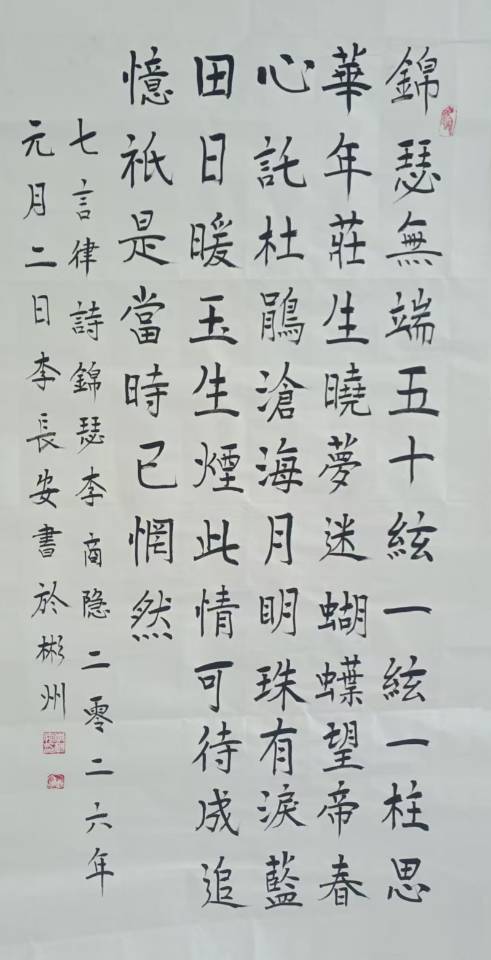 錦瑟無端五十絃一絃一柱思
華年莊生曉夢迷蝴蝶望帝春
心託杜鵑滄海月明珠有淚藍
田日暖玉生煙此情可待成追
憶祇是當時已惘然
七言律詩錦瑟李商隐二零二六年
元月二日李長安書於彬州